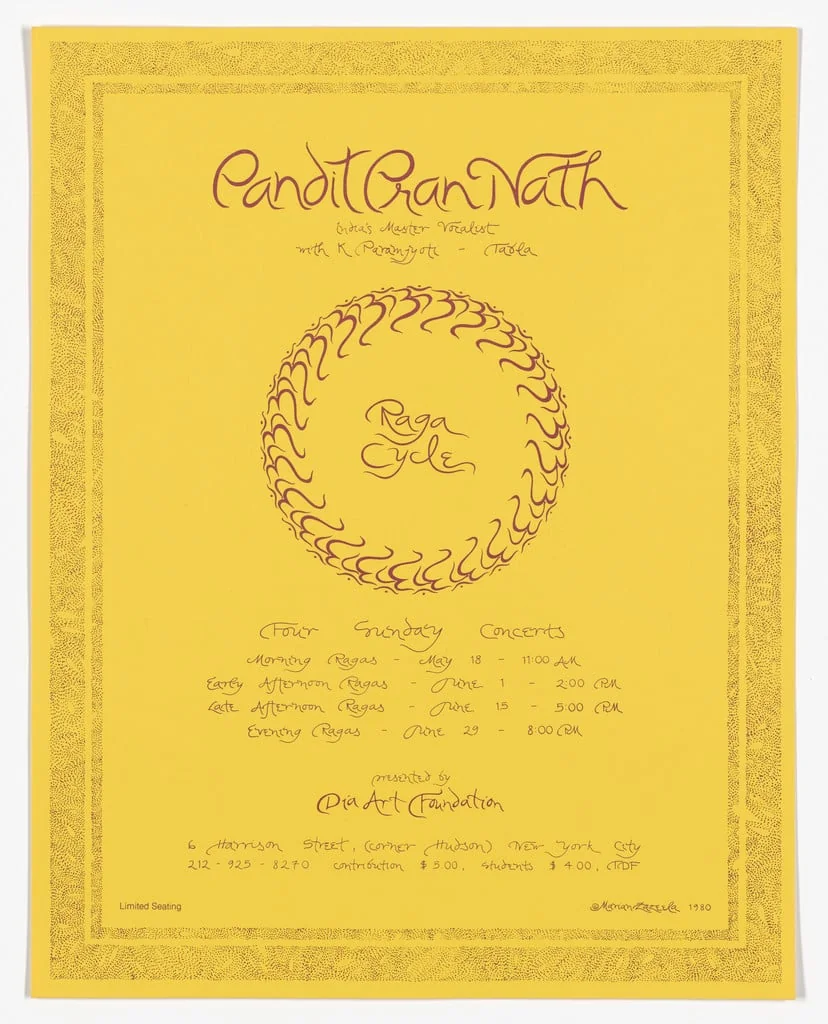 Pandit Pran Nath
India's Master Vocalist
with K Paramjyoti - Tabla
Raga
Cycle
Four Sunday Concerts
Morning Ragas - May 18 - 11:00 AM
Early Afternoon Ragas - June 1 - 2:00 PM
Late Afternoon Ragas - June 15 - 5:00 PM
Evening Ragas - June 29 - 8:00 PM
presented by
Dia Art Foundation
6 Harrison Street, (corner Hudson) New York City
212-925-8270 contribution $5.00, students $4.00, TDF
Limited Seating
©Marian Zazeela 1980